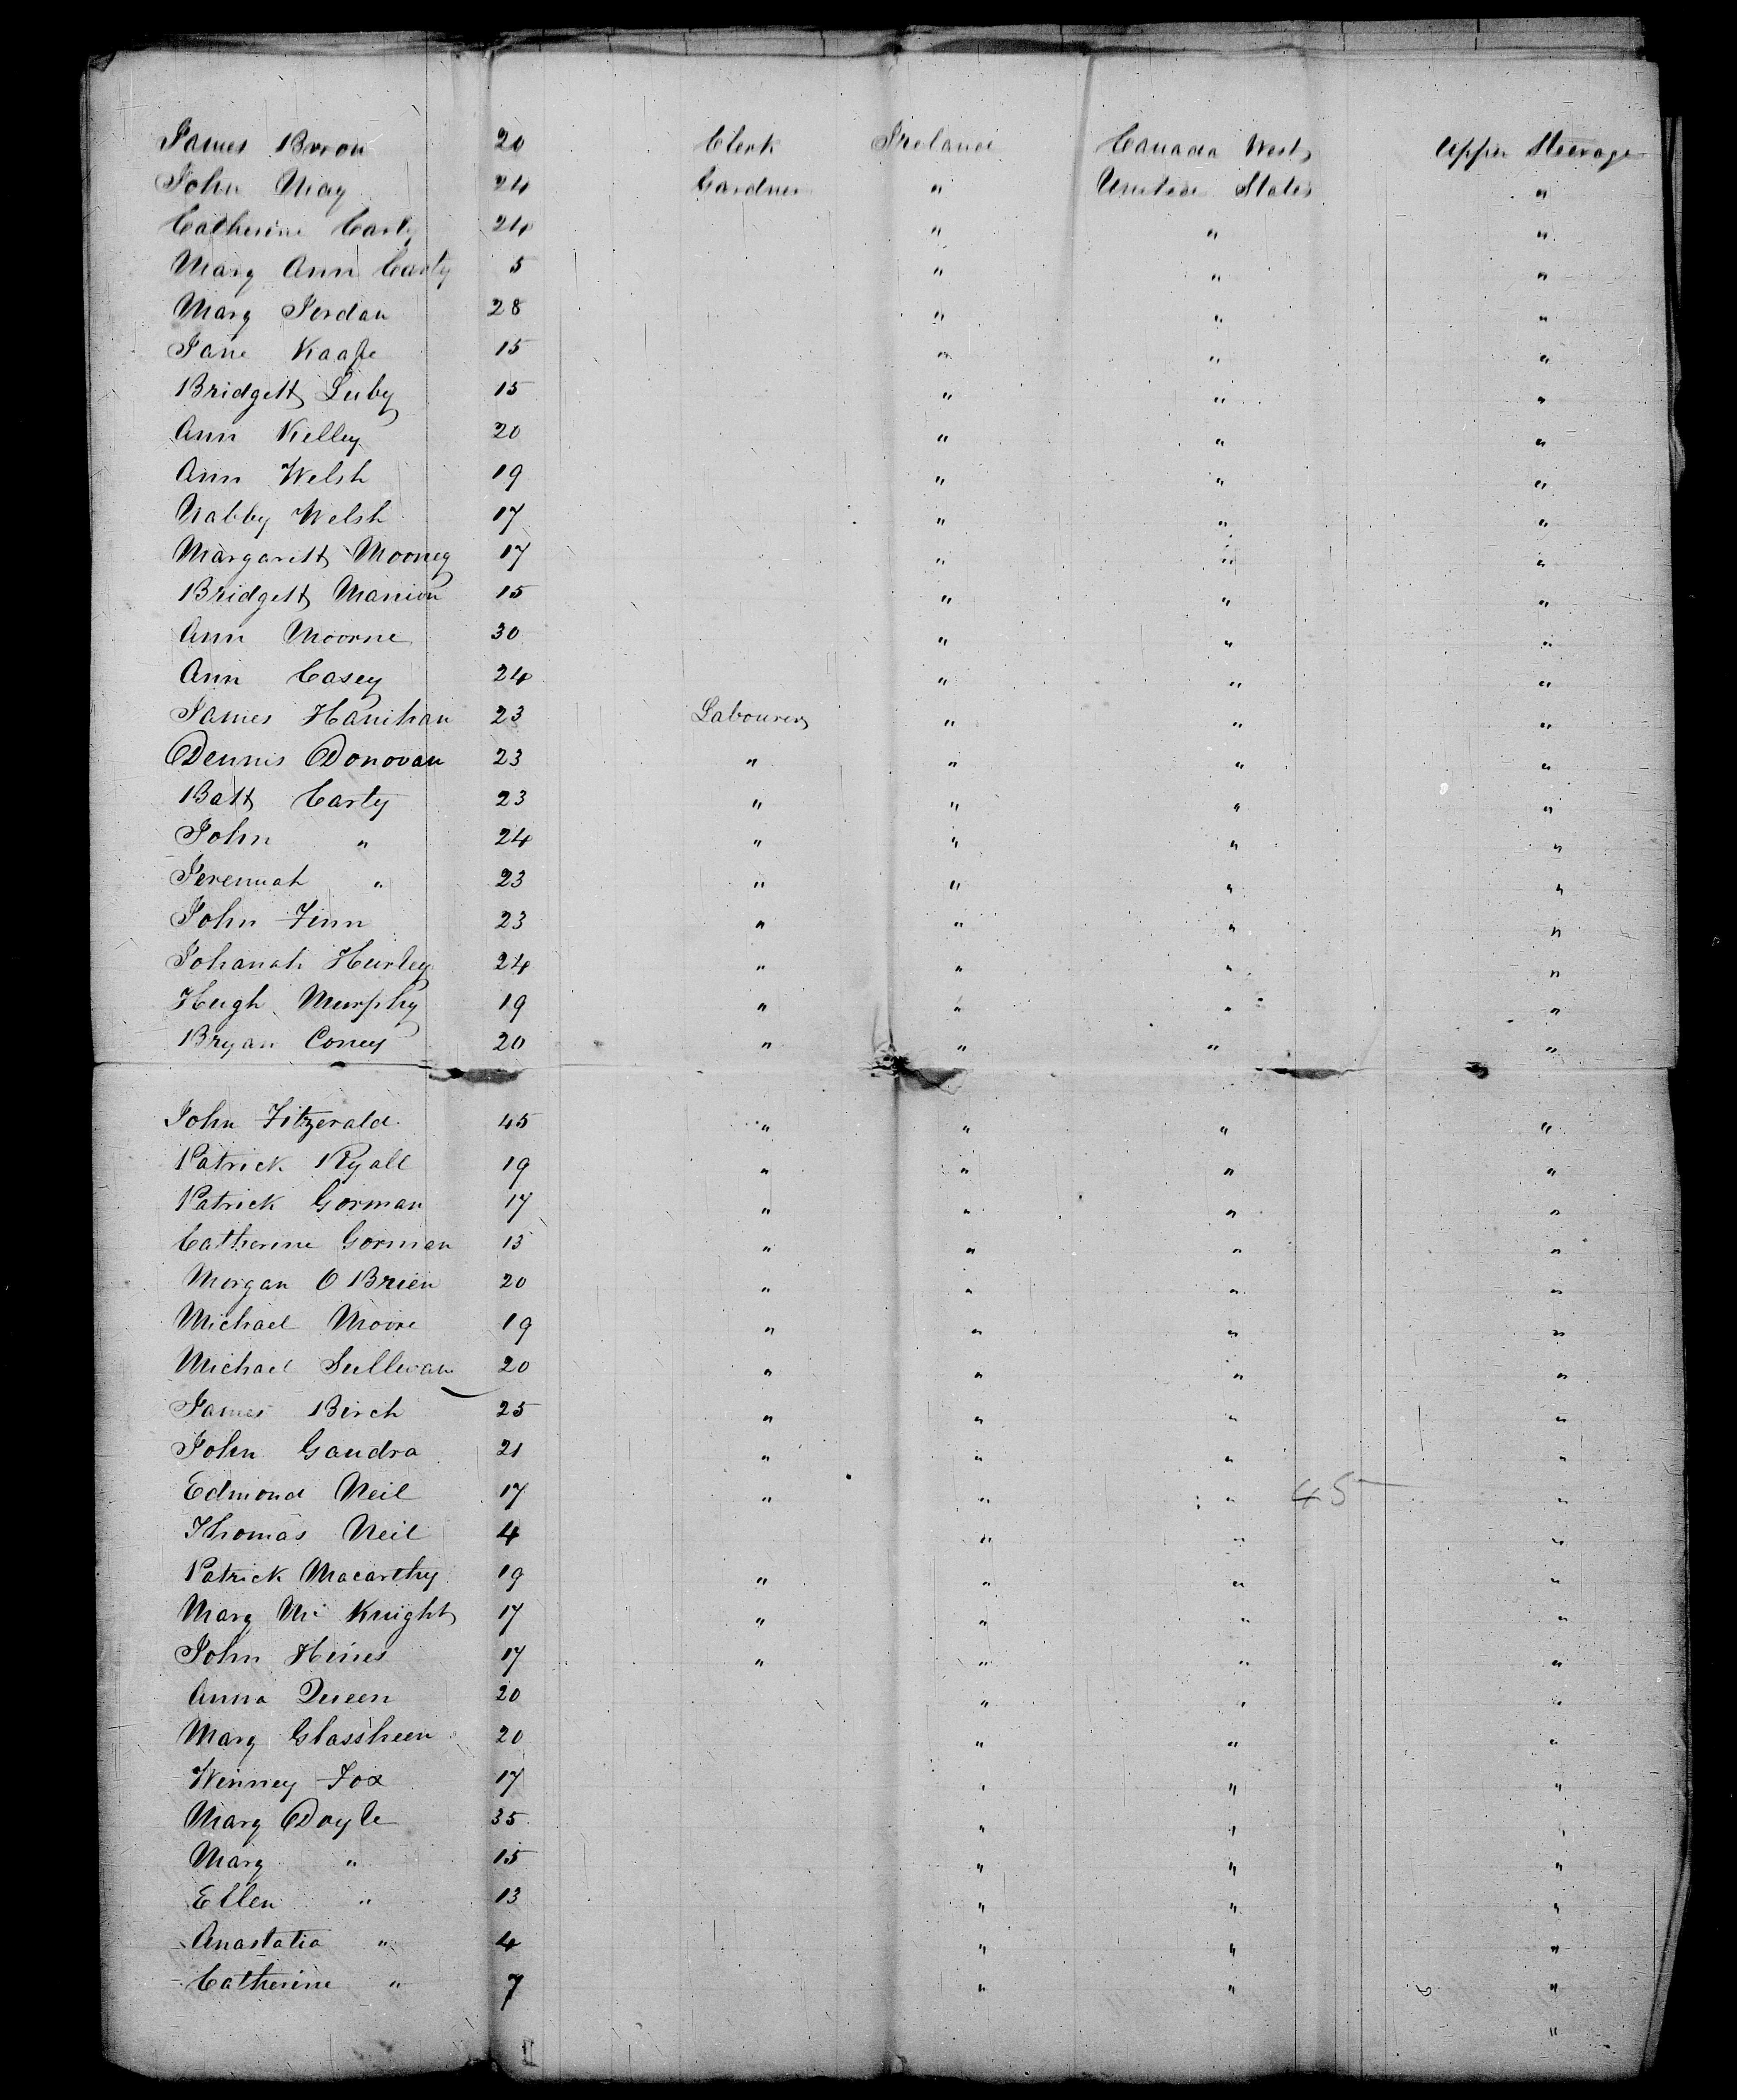 James Byron 20 Clerk Ireland Canada West Upper Steerage
John May 24 Gardner " United States "
Catherine Carty 24 " " "
Mary Ann Carty 5 " " "
Mary Jordan 28 " " "
Jane 15 " " "
Bridgett Luby 15 " " "
Ann Kelley 20 " " "
Ann Welsh 19 " " "
Nabby Welsh 17 " " "
Margarett Mooney 17 " " "
Bridgett Manion 15 " " "
Ann Moorne 30 " " "
Ann Casey 24 " " "
James Hanihan 23 Labourer " " "
Dennis Donovan 23 " " " "
Batt Carty 23 " " " "
John " 24 " " " "
Jeremiah " 23 " " " "
John Finn 23 " " " "
Johanah Hurley 24 " " " "
Hugh Murphy 19 " " " "
Bryan Coney 20 " " " "
John Fitzerald 45 " " " "
Patrick Ryall 19 " " " "
Patrick Gorman 17 " " " "
Catherine Gorman 13 " " " "
Morgan O Brien 20 " " " "
Michael Moore 19 " " " "
Michael Sullivan 20 " " " "
James Birch 25 " " " "
John Gandra 21 " " " "
Edmond Neil 17 " " " 45 "
Thomas Neil 4 " " "
Patrick Macarthy 19 " " " "
Mary Mc Knight 17 " " " "
John Hines 17 " " " "
Anna Queen 20 " " "
Mary Glassheen 20 " " "
Winney Fox 17 " " "
Mary Doyle 35 " " "
Mary " 15 " " "
Ellen " 13 " " "
Anastatia " 4 " " "
Catherine " 7 " " "
"